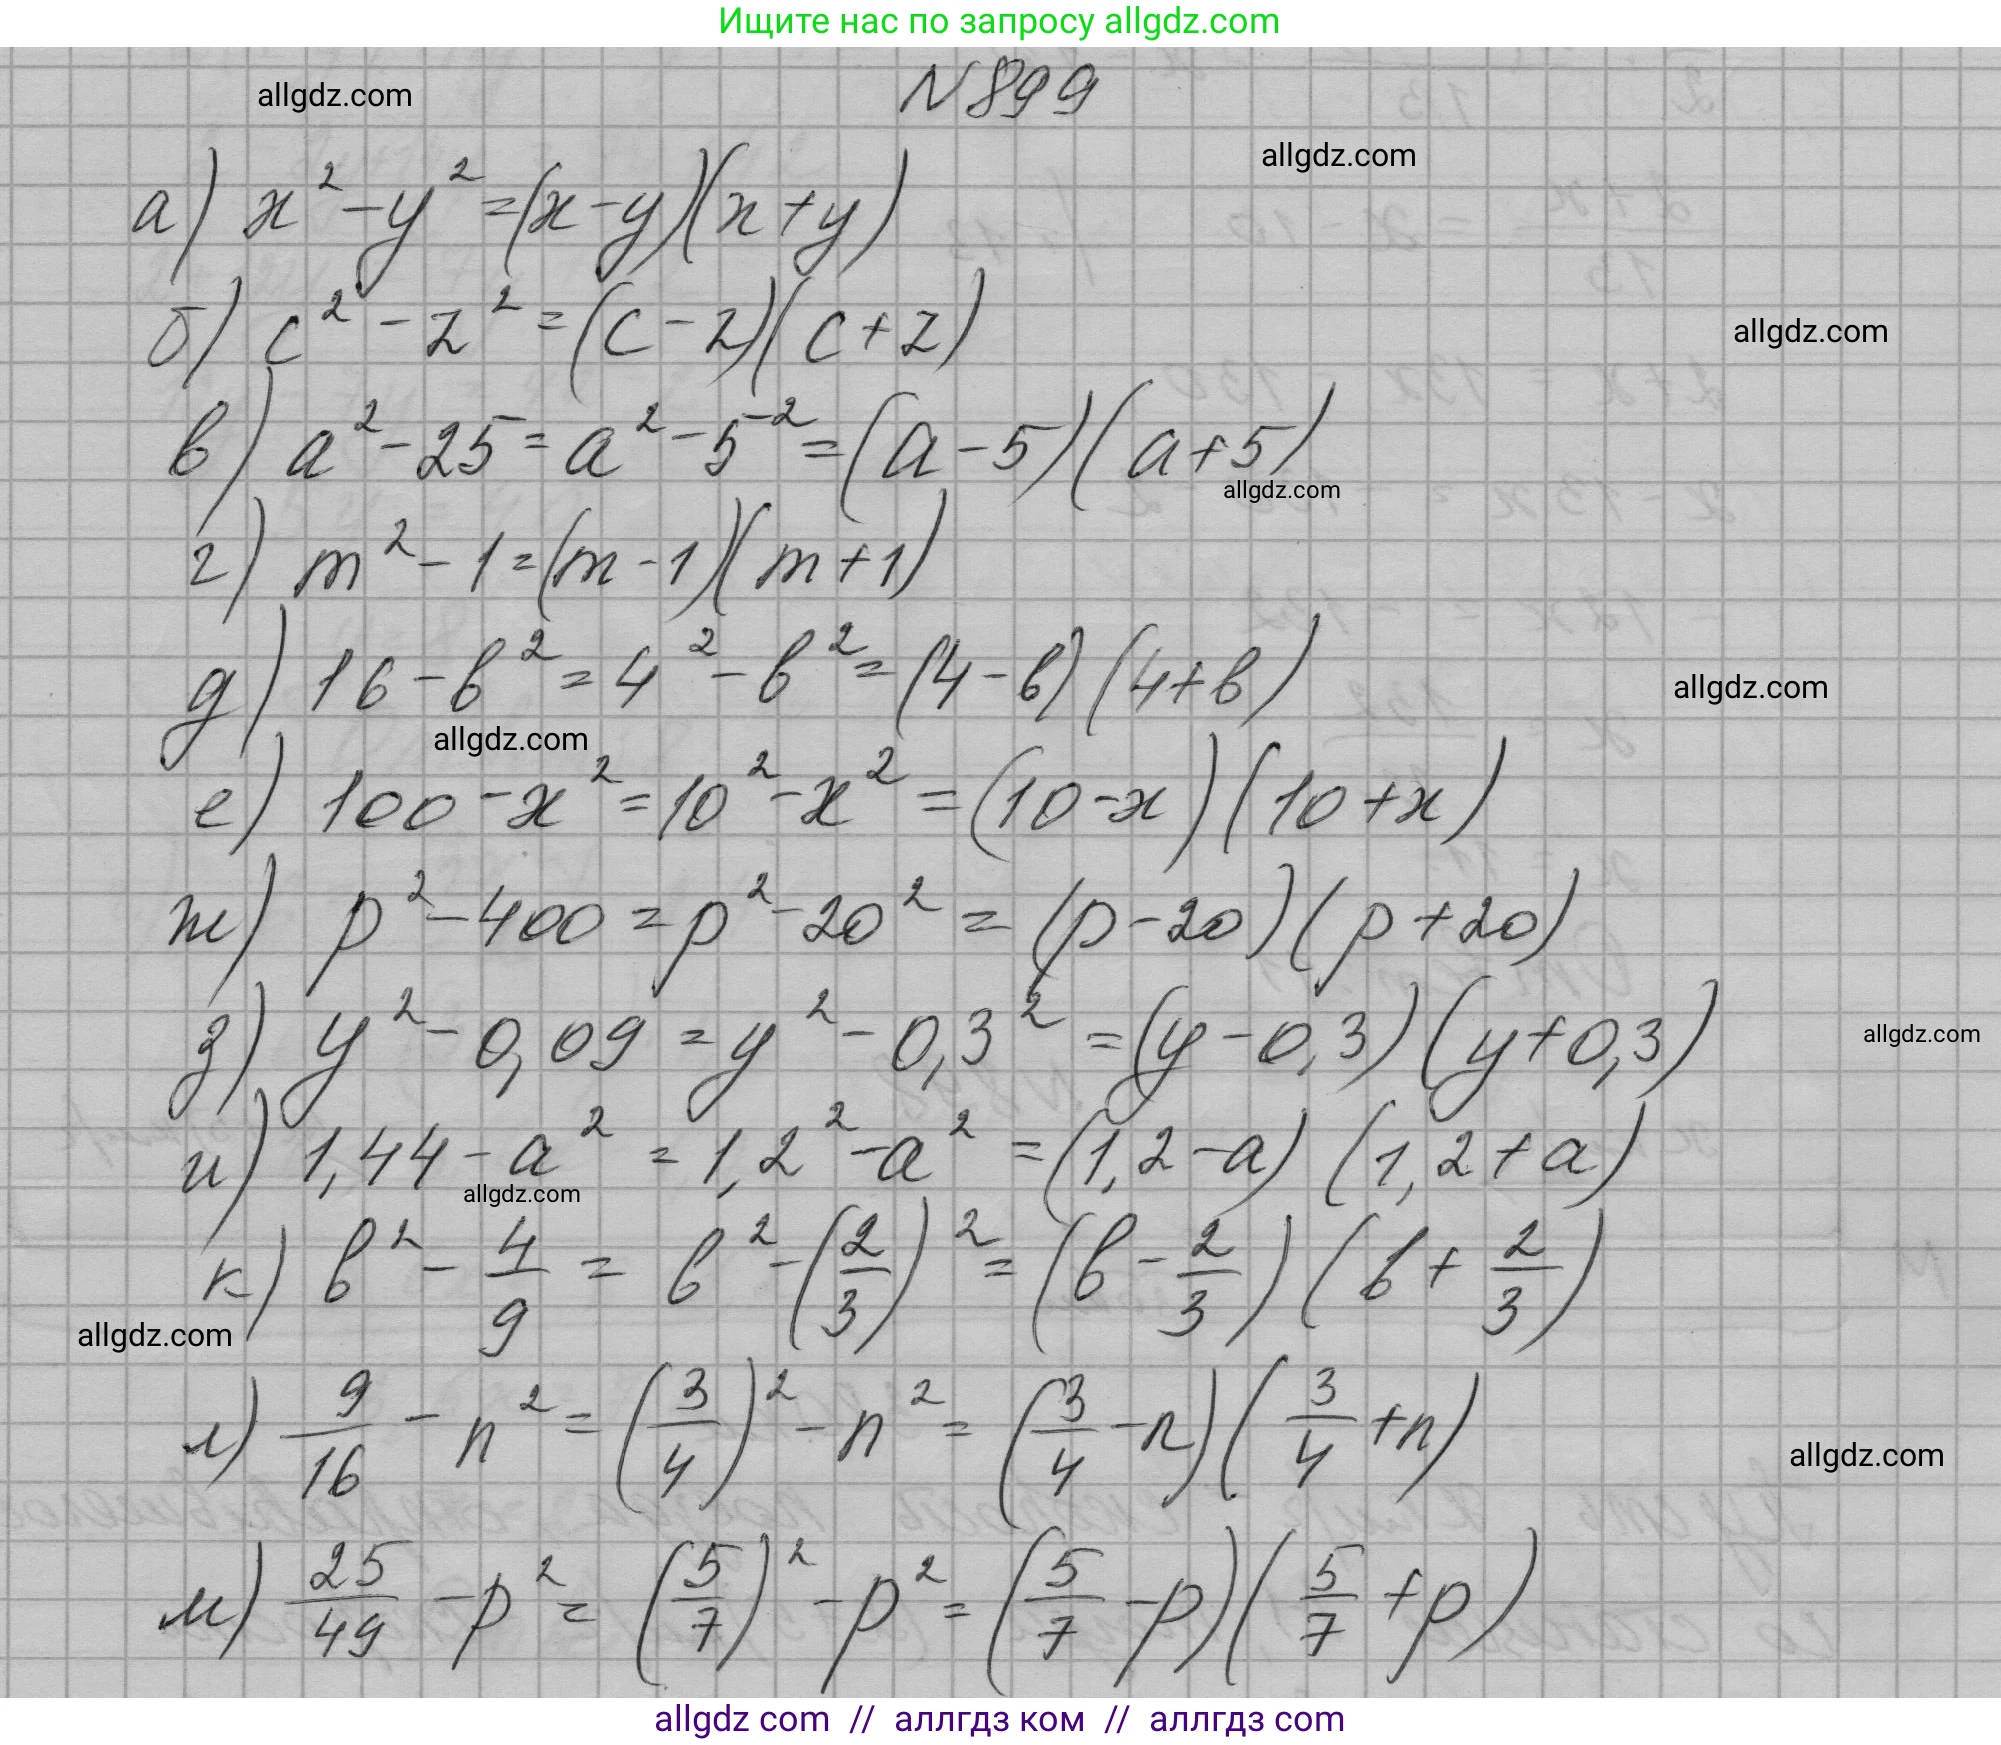 Ищите нас по запросу allgdz.com
N 899
allgdz.com
allgdz.com
а) x² - y² = (x - y)(x + y)
б) c² - z² = (c - z)(c + z)
allgdz.com
в) a² - 25 = a² - 5² = (a - 5)(a + 5)
allgdz.com
г) m² - 1 = (m - 1)(m + 1)
д) 16 - b² = 4² - b² = (4 - b)(4 + b)
allgdz.com
allgdz.com
е) 100 - x² = 10² - x² = (10 - x)(10 + x)
ж) p² - 400 = p² - 20² = (p - 20)(p + 20)
з) y² - 0,09 = y² - 0,3² = (y - 0,3)(y + 0,3)
allgdz.com
и) 1,44 - a² = 1,2² - a² = (1,2 - a)(1,2 + a)
allgdz.com
к) b² - 4/9 = b² - (2/3)² = (b - 2/3)(b + 2/3)
allgdz.com
л) 9/16 - n² = (3/4)² - n² = (3/4 - n)(3/4 + n)
allgdz.com
м) 25/49 - p² = (5/7)² - p² = (5/7 - p)(5/7 + p)
allgdz com // аллгдз ком // аллгдз com